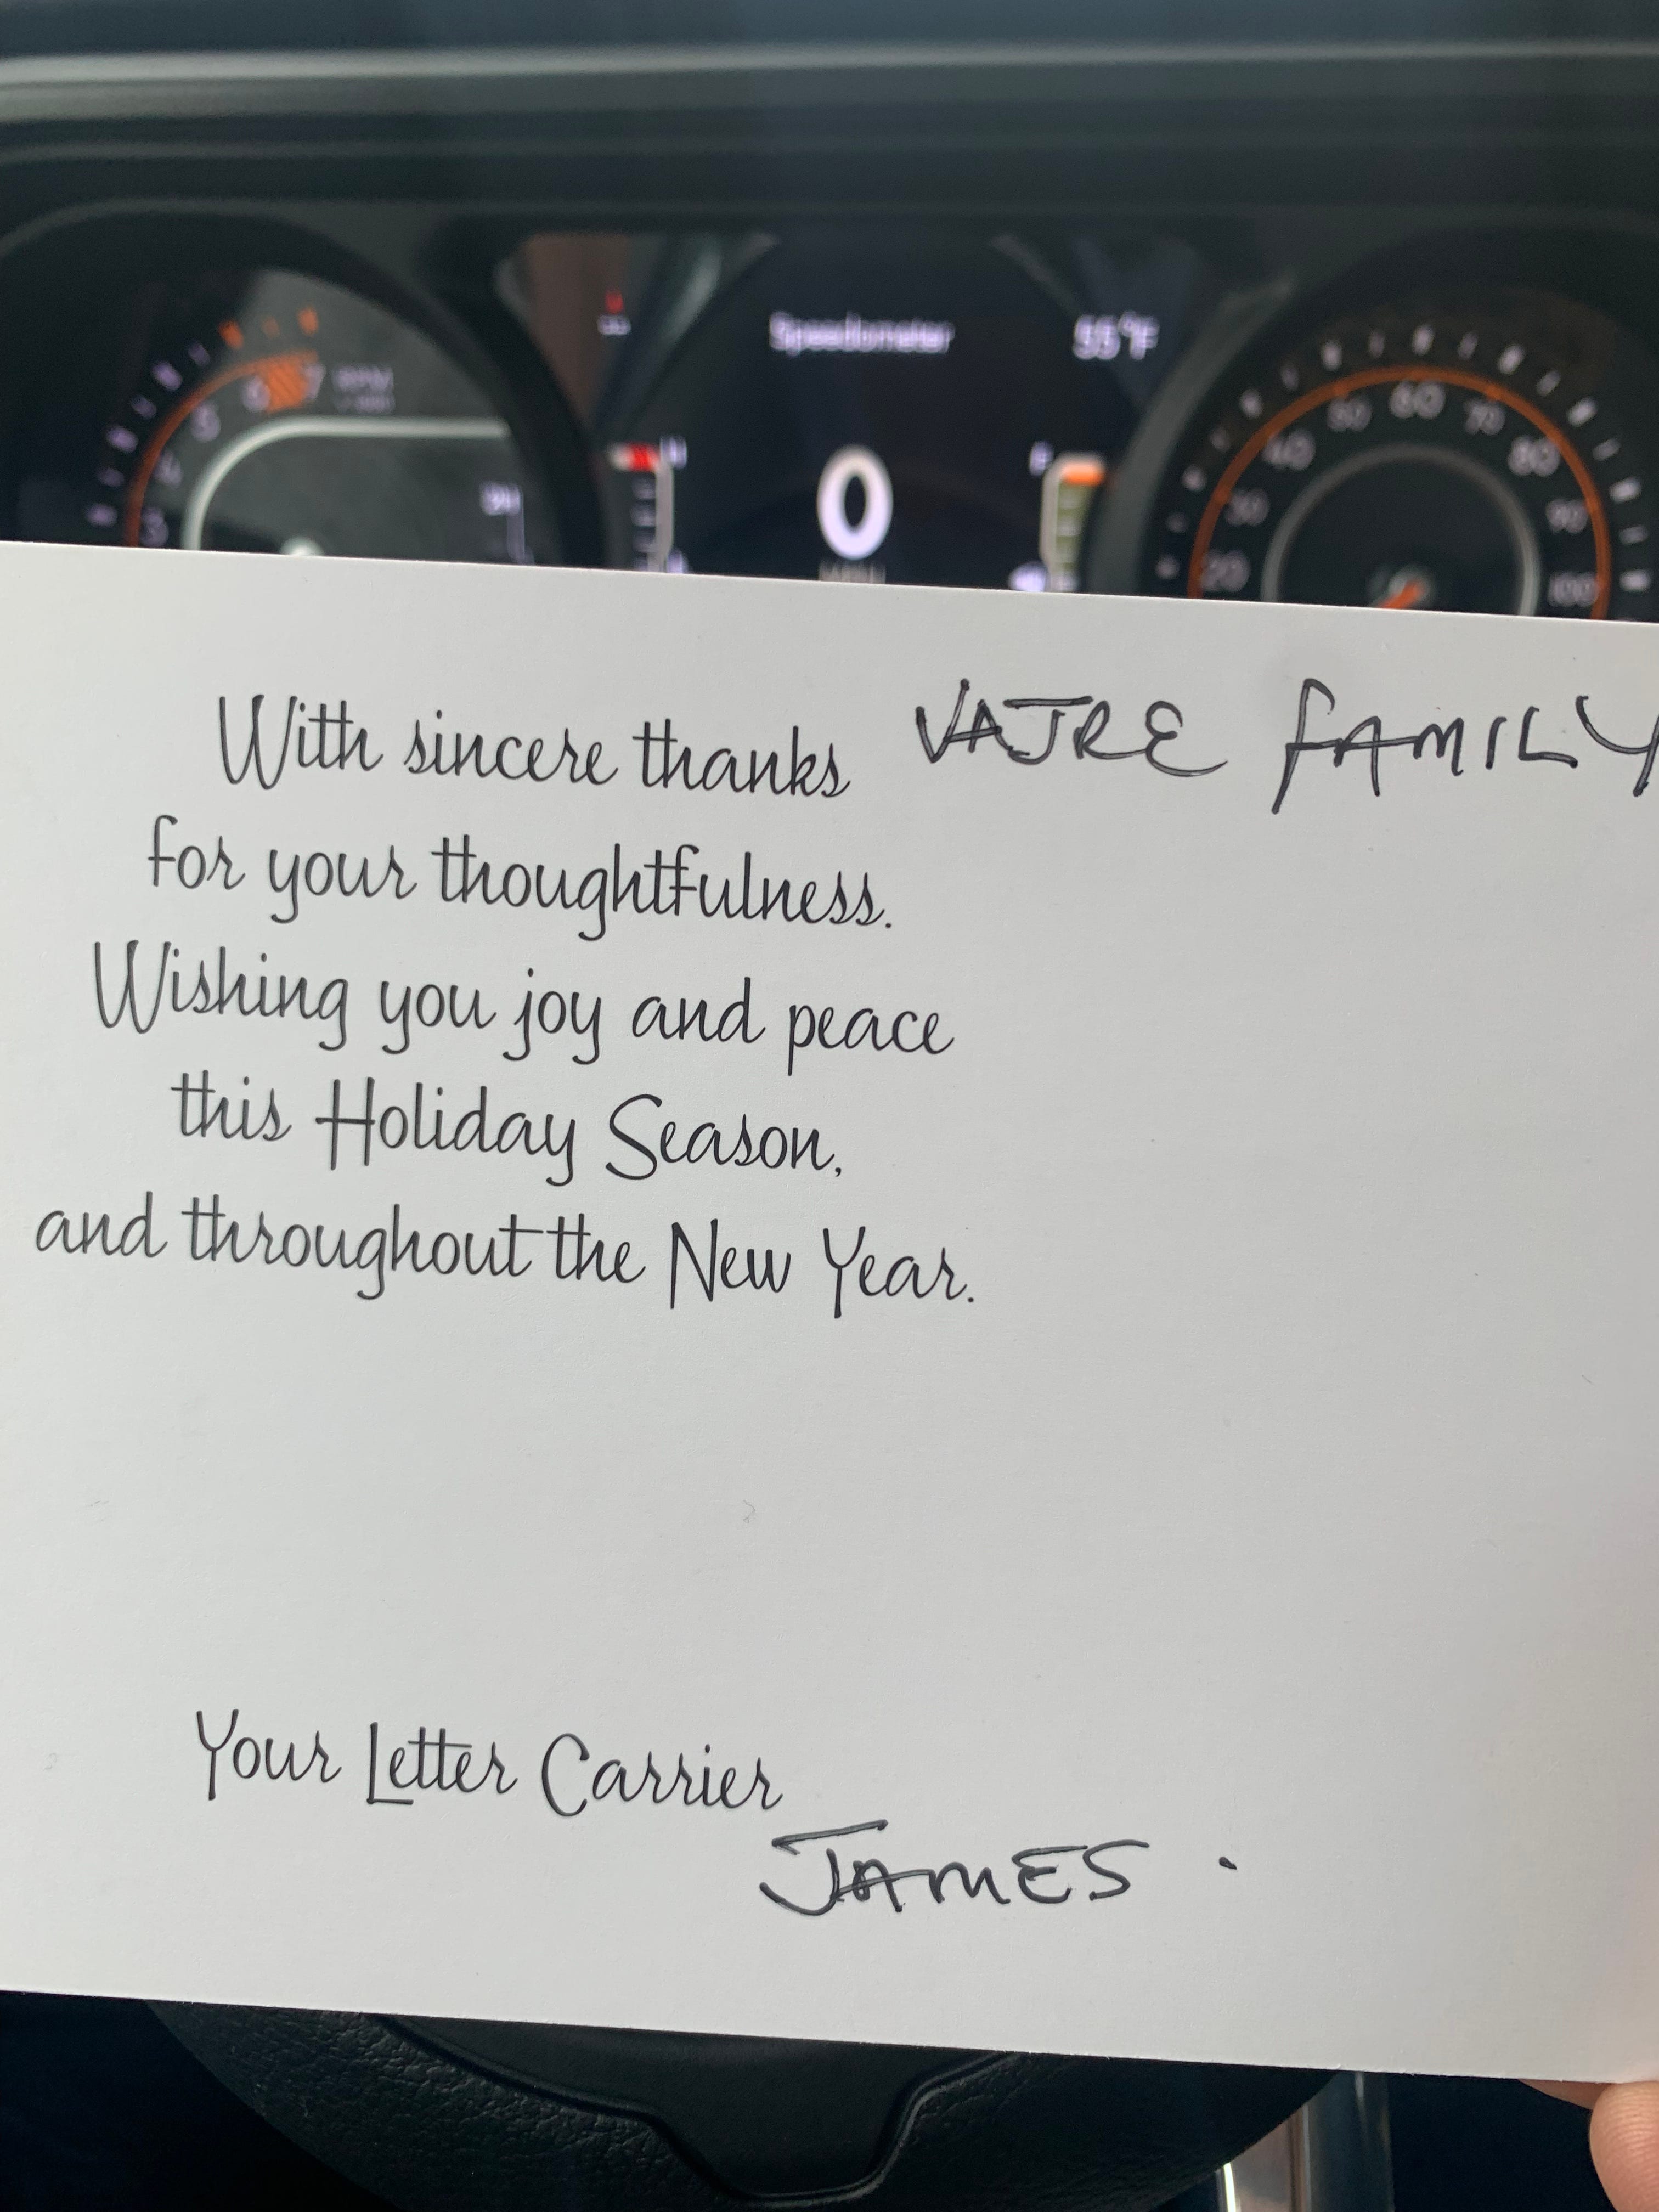 Speedometer 55°F
RPM
5 6 7
4
3
0
50 60 70
40 80
30 90
20 100
With sincere thanks VAJRE FAMILY
for your thoughtfulness.
Wishing you joy and peace
this Holiday Season,
and throughout the New Year.
Your Letter Carrier
JAMES.